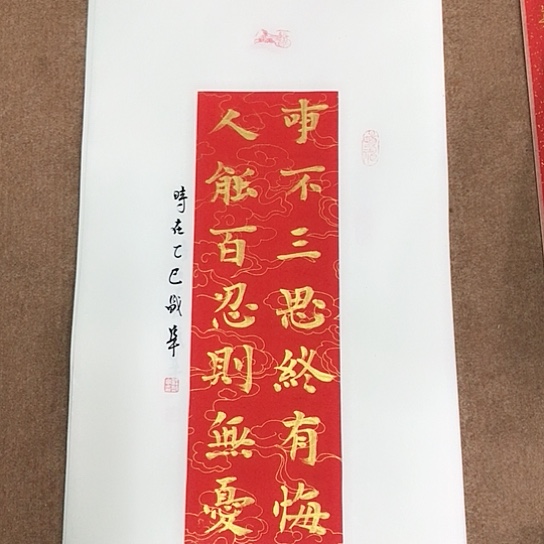 事不三思终有悔
人能百忍則無憂
時在乙巳